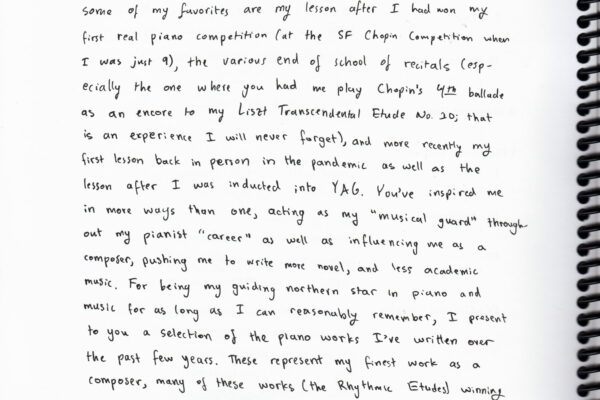 some of my favorites are my lesson after I had won my
first real piano competition (at the SF Chopin Competition when
I was just 9), the various end of school of recitals (esp-
ecially the one where you had me play Chopin's 4th ballade
as an encore to my Liszt Transcendental Etude No. 10; that
is an experience I will never forget), and more recently my
first lesson back in person in the pandemic as well as the
lesson after I was inducted into YAG. You've inspired me
in more ways than one, acting as my "musical guard" through-
out my pianist "career" as well as influencing me as a
composer, pushing me to write more novel, and less academic
music. For being my guiding northern star in piano and
music for as long as I can reasonably remember, I present
to you a selection of the piano works I've written over
the past few years. These represent my finest work as a
composer, many of these works (the Rhythmic Etudes) winning